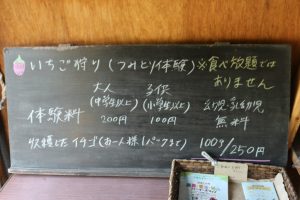 いちご狩り(つみとり体験)※食べ放題では
ありません
大人 子供
(中学生以上) (小学生以上) 幼児・乳幼児
体験料 200円 100円 無料
収穫したイチゴ(お一人様1パックまで) 100g/250円